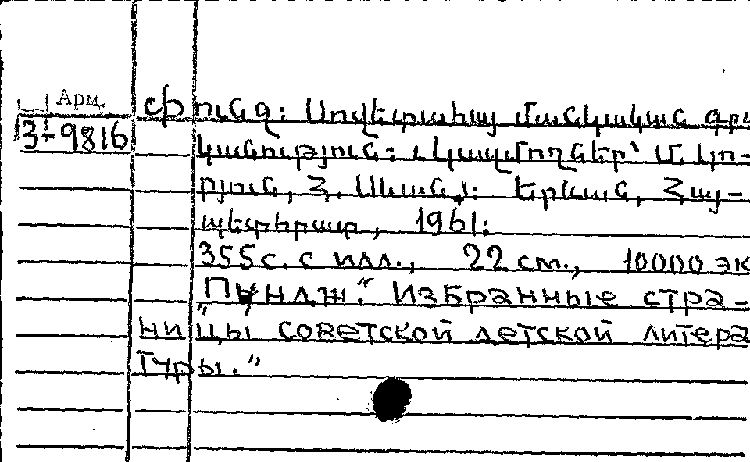 Арм.
3-9816
Փունջ: Սովետահայ մանկական գրա
կանություն: Կազմողներ՝ Մ. Կո-
րյուն, Հ. Երևան, Հայ-
պետհրատ, 1961:
355 с. с илл., 22 см., 10000 эк
"Пындж". Избранные стра-
ницы советской детской литера
туры."